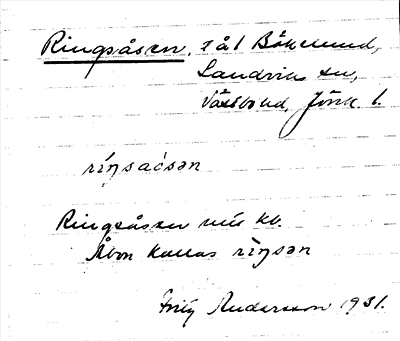 Ringsåsen, s å l Bökelund,
Sandviks sn,
Västbo hd, Jönk l.
ríŋsaósən
Ringsåsen enl. kb.
Åbon kallas rìŋsən
Fritz Andersson 1931.